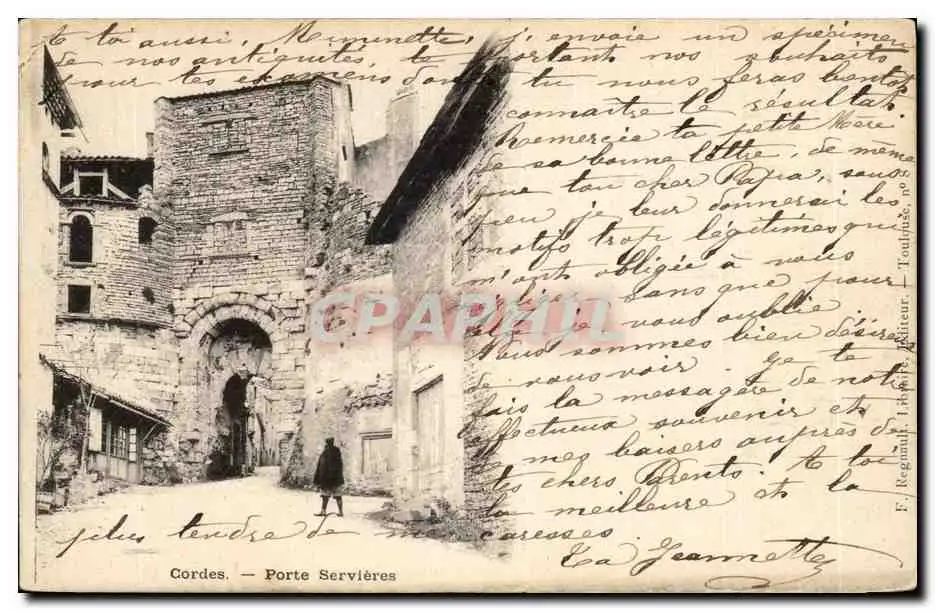 A toi aussi, Miminette, j'envoie un spécimen
de nos antiquités, te portant nos souhaits
pour tes examens dont tu nous feras bentôt
connaître le résultat
Remercie ta petite Mère
de sa bonne lettre, de même
que ton cher Papa, sous
peu je leur donnerai les
motifs trop légitimes qui
m'ont obligée à vous
sans que pour
je vous oublie
Nous sommes bien désireux
de vous voir. Je te
fais la messagère de notre
affectueux souvenir et
de mes baisers auprès de
tes chers Parents. A toi
la meilleure et la
plus tendre de mes caresses.
Ta Jeannette
CPAPHIL
Cordes. — Porte Servières
F. Regnault, Libraire, Éditeur. — Toulouse, nº